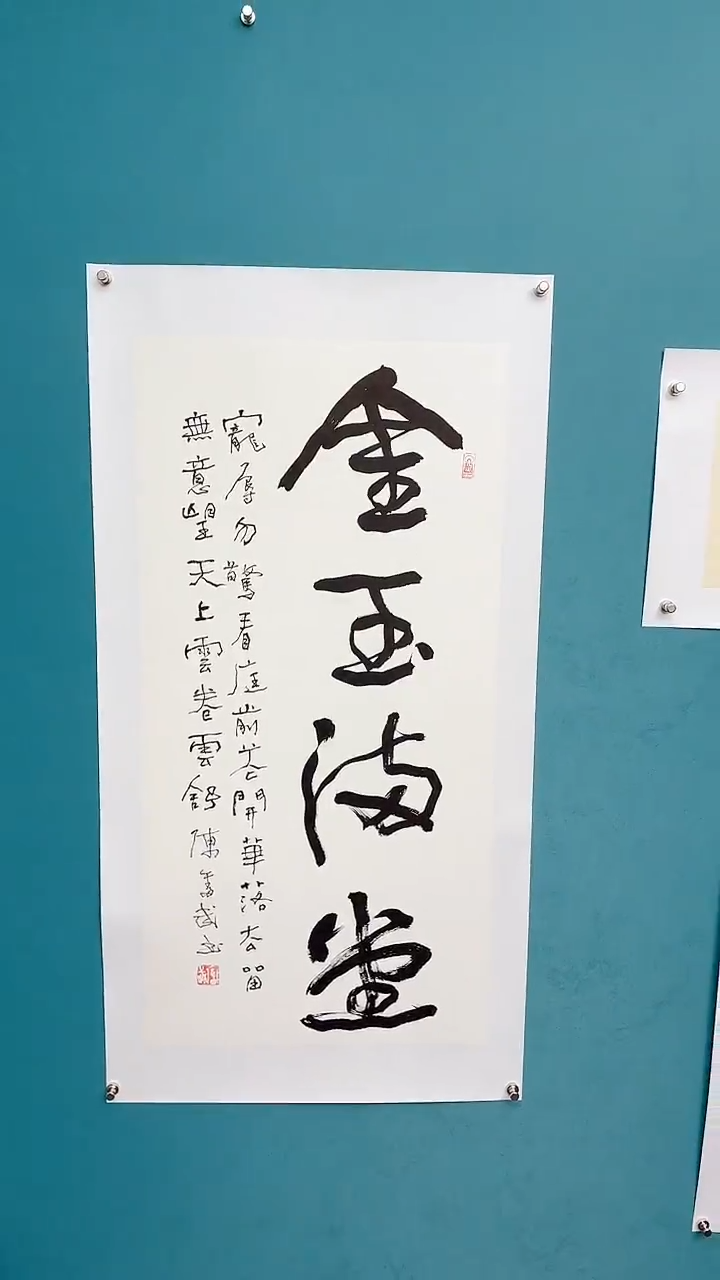 金玉满堂
寵辱勿驚看庭前花開華落去留
無意望天上雲卷雲舒 陳